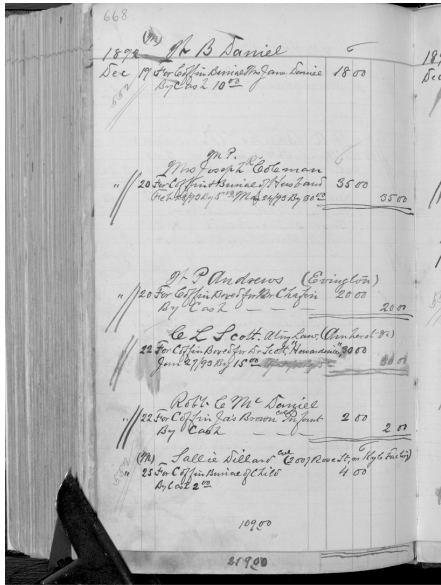 668
(M)
1892 W B Daniel
Dec 17 For Coffin Burial Mrs Jane Daniel 18 00
By Cash 10 00
M P.
Mrs Joseph R Coleman
" 20 For Coffin & Burial of Husband 35 00
Feb By 5 00 24/93 By 30 00 35 00
W P Andrews (Evington)
" 20 For Coffin Boxed for Chafin 20 00
By Cash — — — 20 00
C L Scott. Atty Law. (Amherst
22 For Coffin Boxed for Dr Scott 30 00
Jan 27/93 By 15 00 30 00
Robt C Mc Daniel
" 22 For Coffin Jas Brown Infant 2 00
By Cash — — 2 00
(M) Sallie Dillard col (2007 Rose St,
" 25 For Coffin Burial of Child 4 00
By Cash 2 00
109 00
219 00